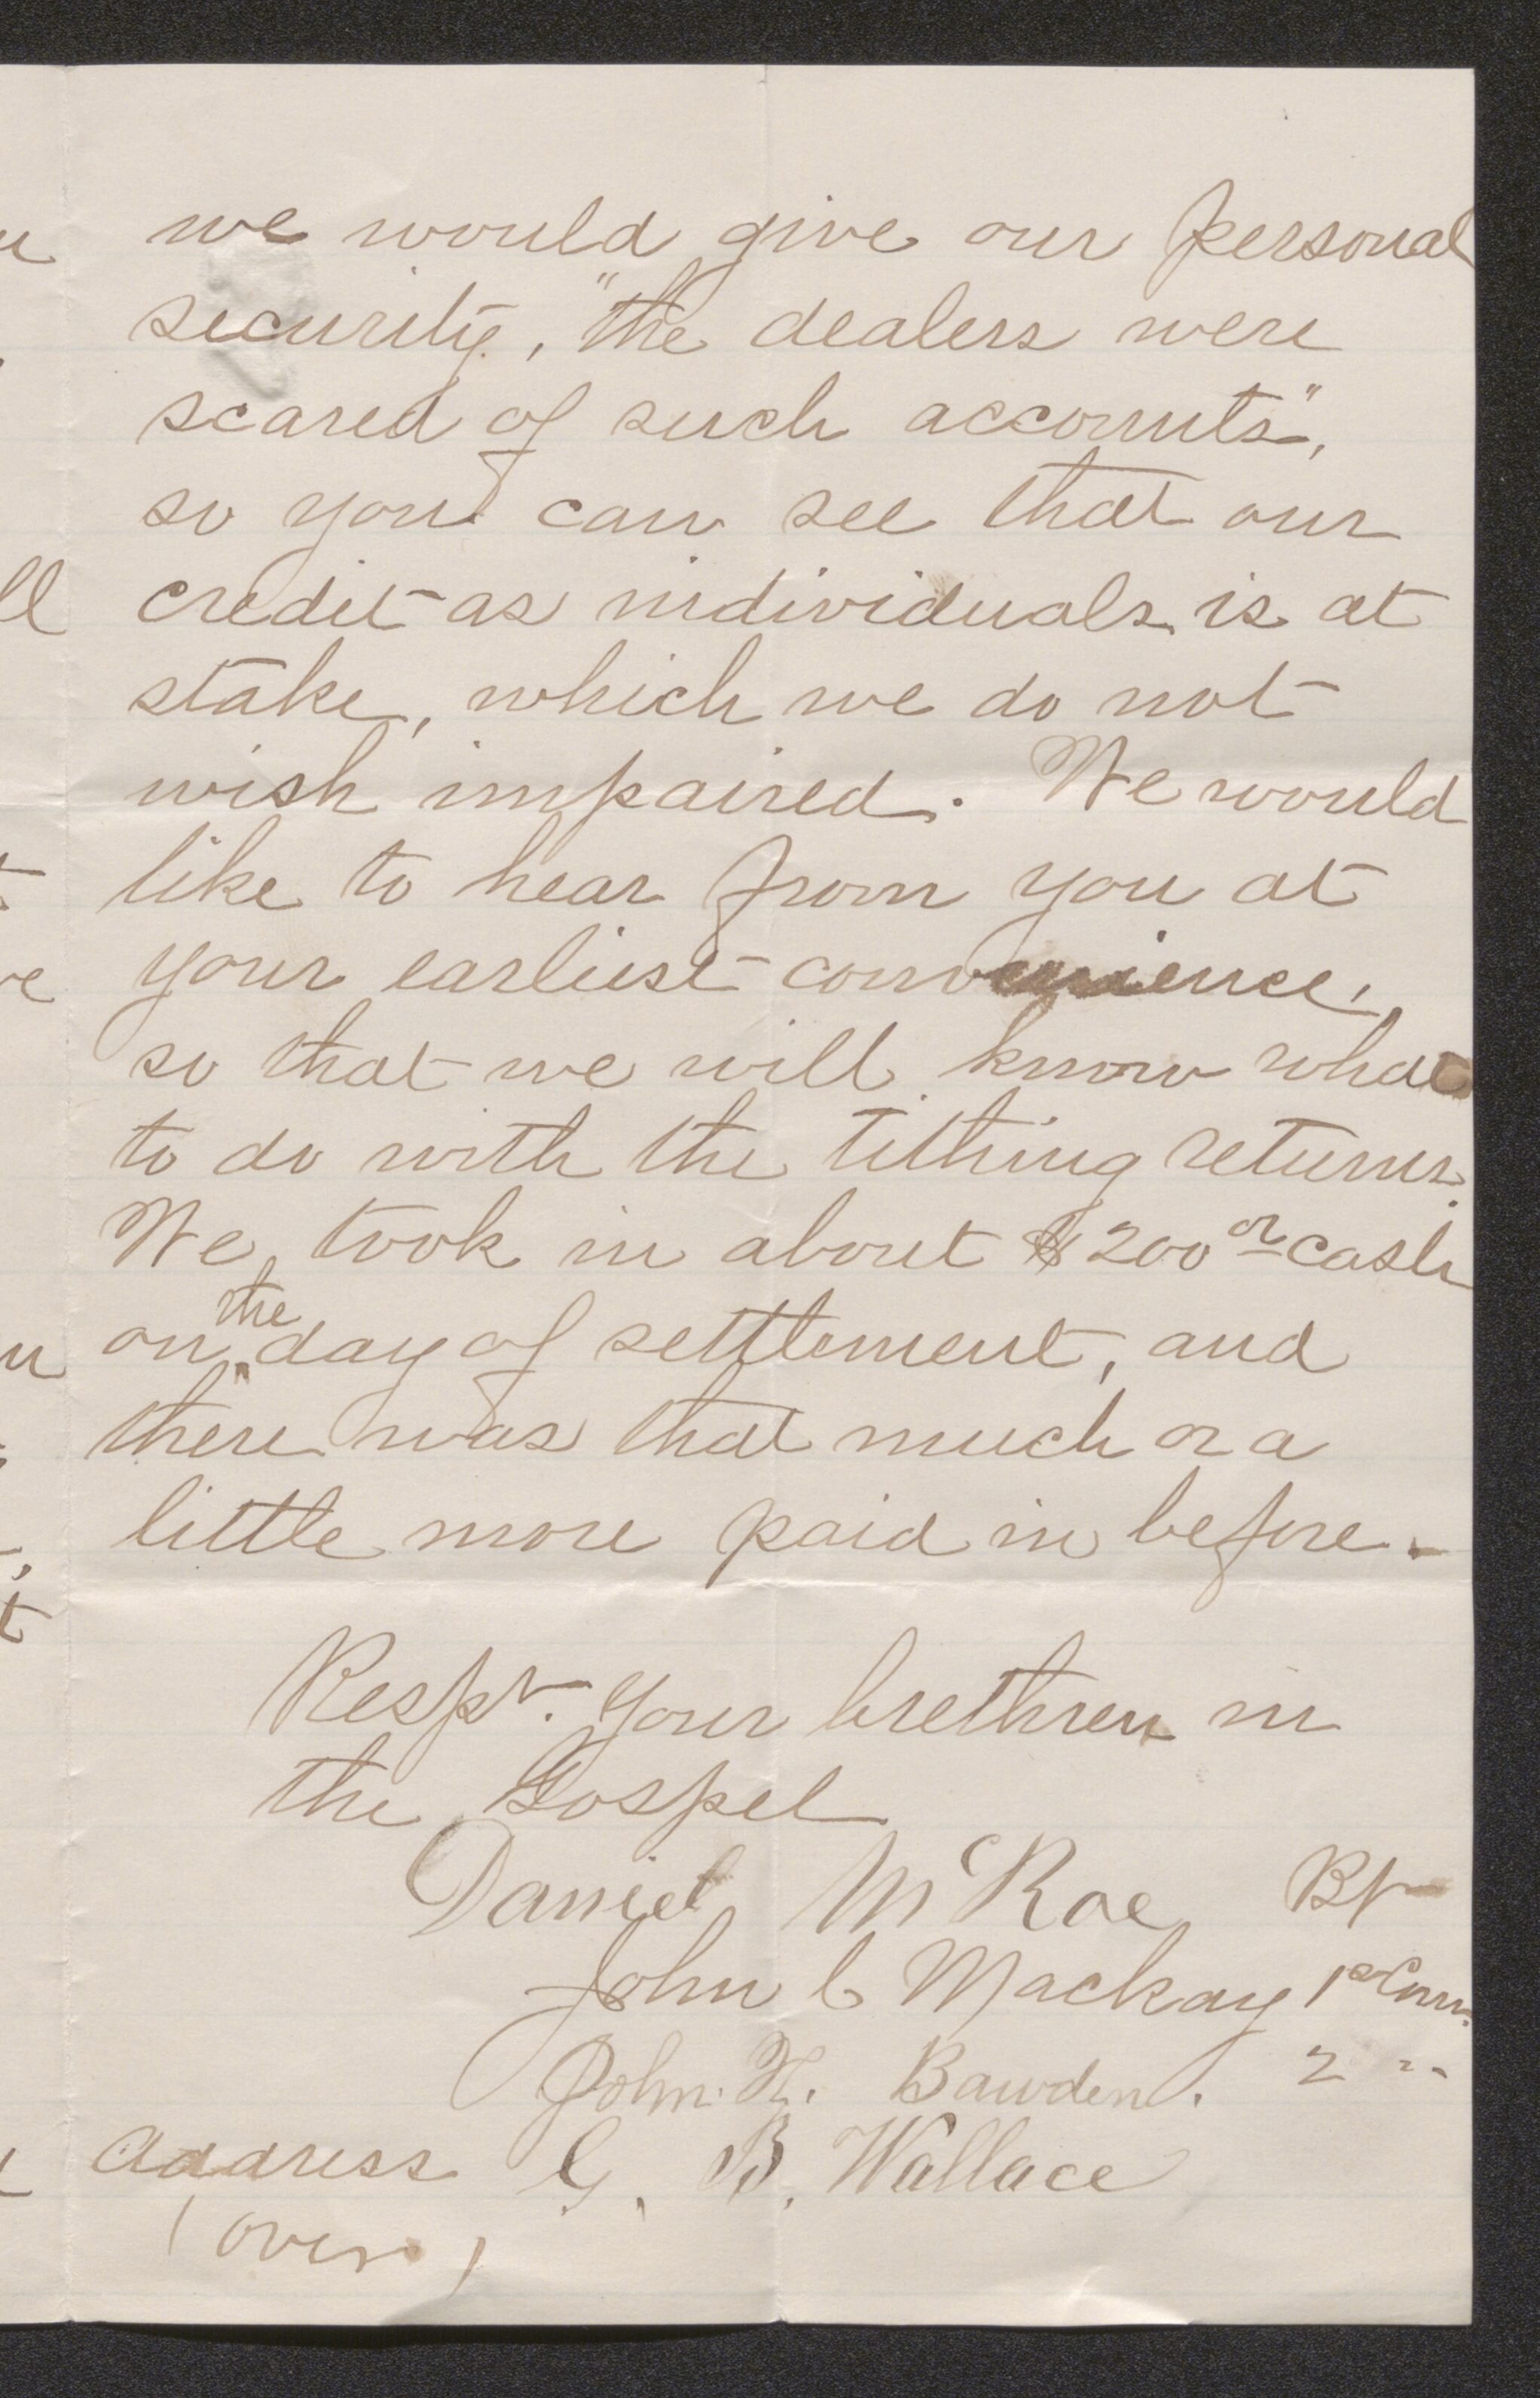 we would give our personal
security, "the dealers were
scared of such accounts",
so you can see that our
credit as individuals is at
stake, which we do not
wish impaired. We would
like to hear from you at
your earliest convenience,
so that we will know what
to do with the tithing returns.
We took in about $200 or cash
on the day of settlement, and
there was that much or a
little more paid in before.
Respt. Your brethren in
the Gospel
Daniel McRae Bp
John C Mackay 1st Coun.
John H. Bawden. 2 " "
Address G. B. Wallace
(over)